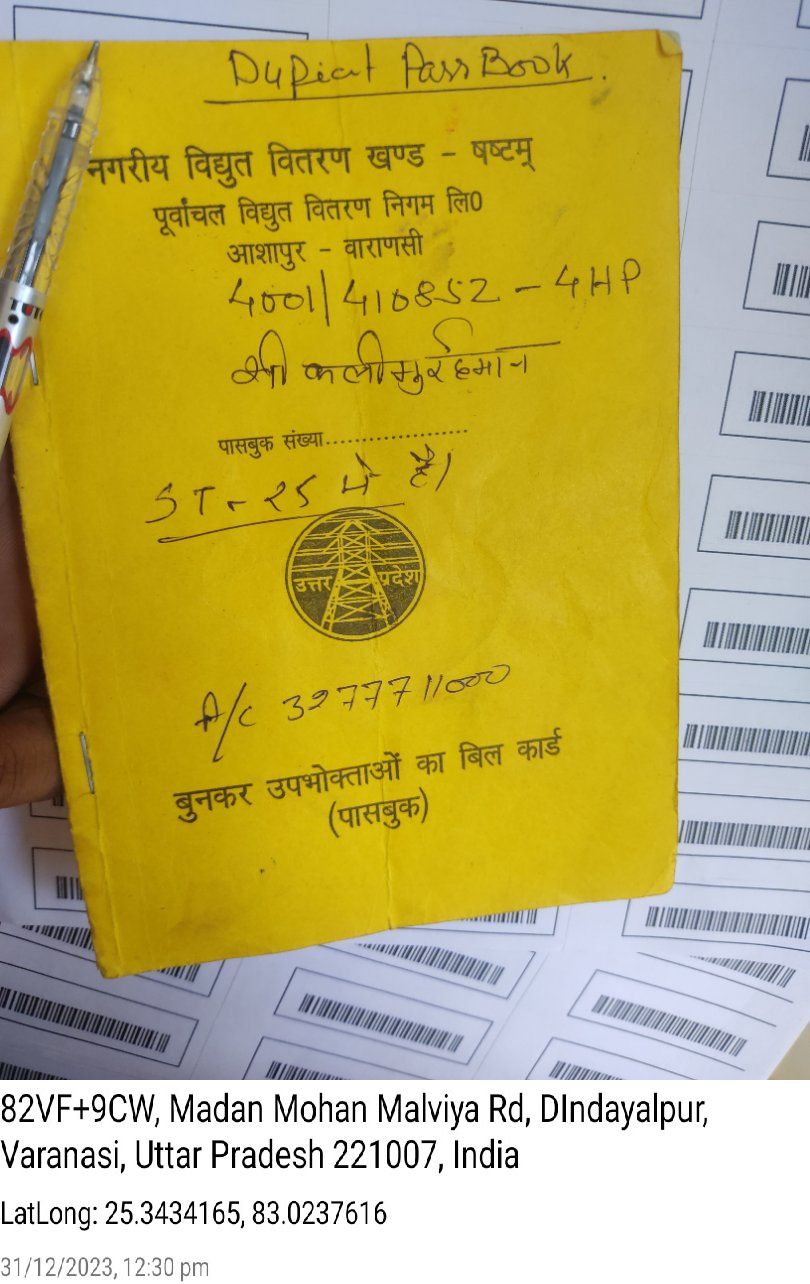 Dupicat Pass Book.
नगरीय विद्युत वितरण खण्ड - षष्टम्
पूर्वांचल विद्युत वितरण निगम लि0
आशापुर - वाराणसी
4001/410852 - 4HP
श्री कलीमुर्रहमान
पासबुक संख्या....................
ST - 25 में है।
उत्तर प्रदेश
A/C 3977711000
बुनकर उपभोक्ताओं का बिल कार्ड
(पासबुक)
82VF+9CW, Madan Mohan Malviya Rd, DIndayalpur,
Varanasi, Uttar Pradesh 221007, India
LatLong: 25.3434165, 83.0237616
31/12/2023, 12:30 pm